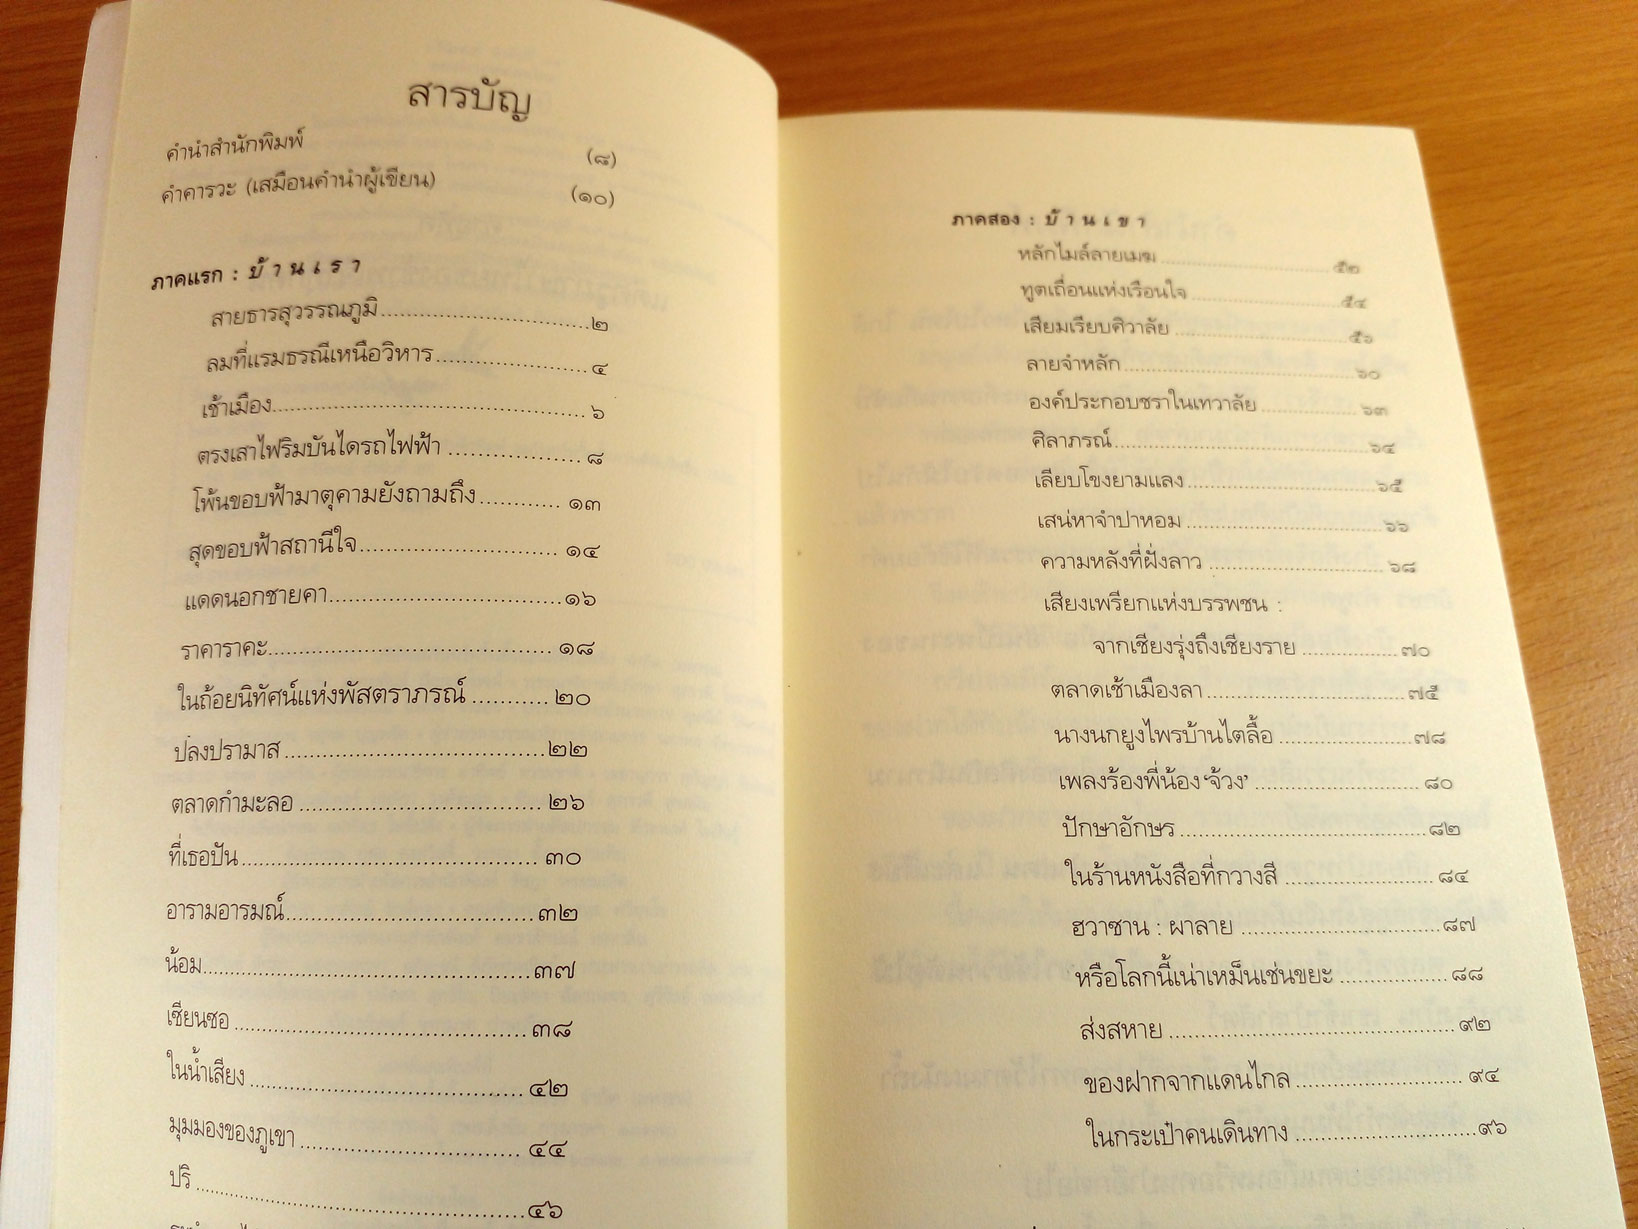 สารบัญ
คำนำสำนักพิมพ์ (๘)
คำคารวะ (เสมือนคำนำผู้เขียน) (๑๐)
ภาคแรก : บ้านเรา
สายธารสุวรรณภูมิ ๒
ลมที่แรมธรณีเหนือวิหาร ๔
เช้าเมือง ๖
ตรงเสาไฟริมบันไดรถไฟฟ้า ๘
โพ้นขอบฟ้ามาตุคามยังถามถึง ๑๓
สุดขอบฟ้าสถานีใจ ๑๔
แดดนอกชายคา ๑๖
ราคาราคะ ๑๘
ในถ้อยนิทัศน์แห่งพัสตราภรณ์ ๒๐
ปลงปรามาส ๒๒
ตลาดกำมะลอ ๒๖
ที่เธอปัน ๓๐
อารามอารมณ์ ๓๒
น้อม ๓๗
เซียนซอ ๓๘
ในน้ำเสียง ๔๒
มุมมองของภูเขา ๔๔
ปริ ๔๖
ภาคสอง : บ้านเขา
หลักไมล์ลายเมฆ ๕๒
ทูตเถื่อนแห่งเรือนใจ ๕๔
เสียมเรียบศิวาลัย ๕๖
ลายจำหลัก ๖๐
องค์ประกอบชราในเทวาลัย ๖๓
ศิลาภรณ์ ๖๔
เลียบโขงยามแลง ๖๕
เสน่หาจำปาหอม ๖๖
ความหลังที่ฝั่งลาว ๖๘
เสียงเพรียกแห่งบรรพชน :
จากเชียงรุ่งถึงเชียงราย ๗๐
ตลาดเช้าเมืองลา ๗๕
นางนกยูงไพรบ้านไตลื้อ ๗๘
เพลงร้องพี่น้อง ‘จ้วง’ ๘๐
ปักษาอักษร ๘๒
ในร้านหนังสือที่กวางสี ๘๔
ฮวาซาน : ผาลาย ๘๗
หรือโลกนี้เน่าเหม็นเช่นขยะ ๘๘
ส่งสหาย ๙๒
ของฝากจากแดนไกล ๙๔
ในกระเป๋าคนเดินทาง ๙๖